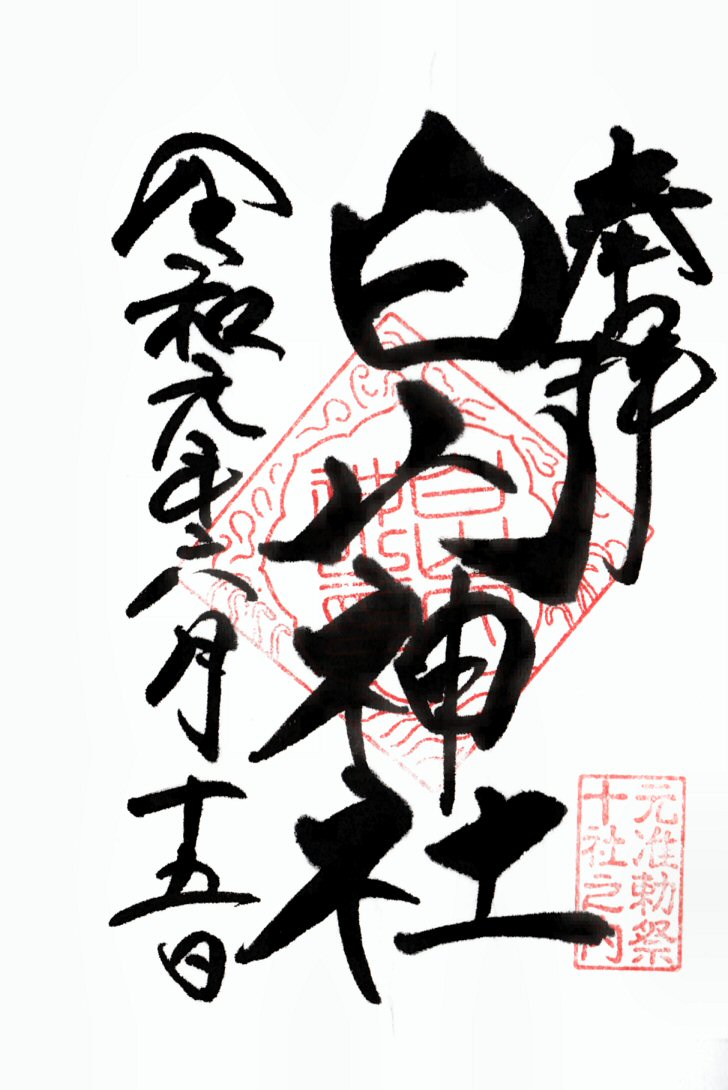 奉拝
白山神社
令和元年六月十五日
元准勅祭
十社之内